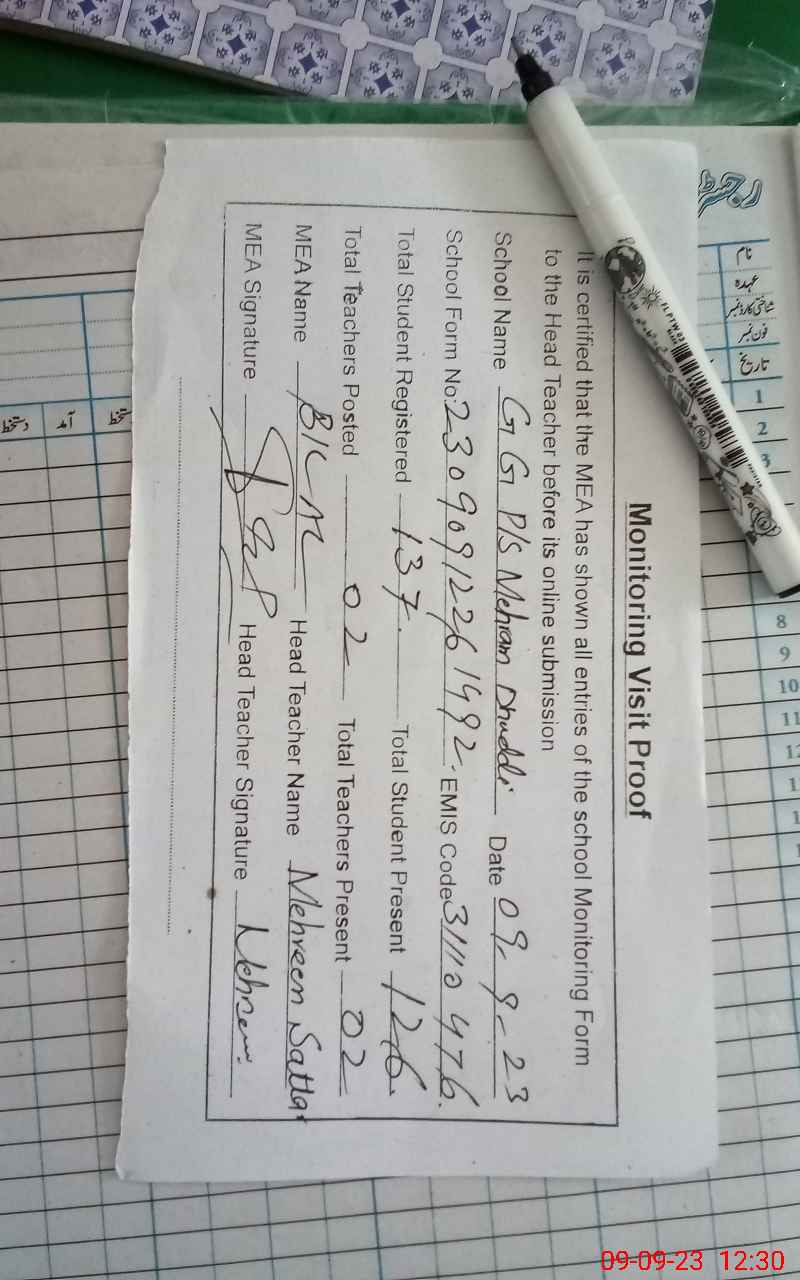 Monitoring Visit Proof
It is certified that the MEA has shown all entries of the school Monitoring Form
to the Head Teacher before its online submission
School Name G G P/S Mehram Dhuddi Date 09-9-23
School Form No: 23090912261992. EMIS Code 31110476.
Total Student Registered 137. Total Student Present 126.
Total Teachers Posted 02 Total Teachers Present 02
MEA Name Head Teacher Name Mehreen Sattar
MEA Signature Head Teacher Signature Mehreen.
رجسٹر
نام
عہدہ
شناختی کارڈ نمبر
فون نمبر
تاریخ
1
2
3
8
9
10
11
آمد
دستخط
09-09-23 12:30